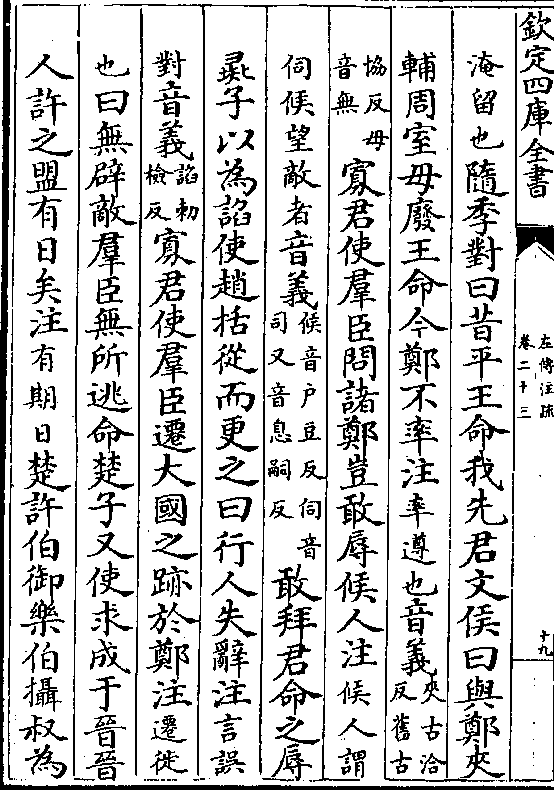 欽定四庫全書
左傳注疏
卷二十三
十九
淹留也隨季對曰昔平王命我先君文侯曰與鄭夾
輔周室毋廢王命今鄭不率注率遵也音義夾古洽反舊古
協反毋音無寡君使羣臣問諸鄭豈敢辱候人注候人謂
伺候望敵者音義候音戶豆反伺音司又音息嗣反敢拜君命之辱
彘子以為諂使趙括從而更之曰行人失辭注言誤
對音義諂勑檢反寡君使羣臣遷大國之跡於鄭注遷徙
也曰無辟敵羣臣無所逃命楚子又使求成于晉晉
人許之盟有日矣注有期日楚許伯御樂伯攝叔為